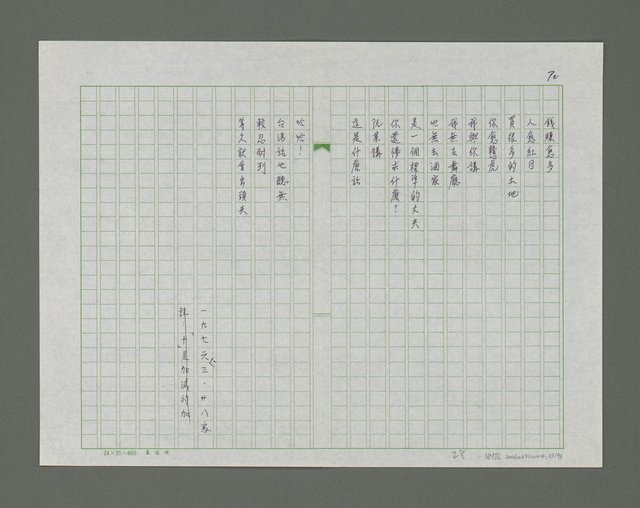 72
錢賺愈多
人愈紅目
買很多的土地
你愈
我與你講
我無去舞廳
也無去酒家
是一個標準的丈夫
你還慘求什麼？
阮某講
這是什麼話
哈哈！
台湾話也聽無
較忍耐列
等久就會出頭天
一九七六、三、廿八
註：是加減的加
24×25=600
28
NMTL